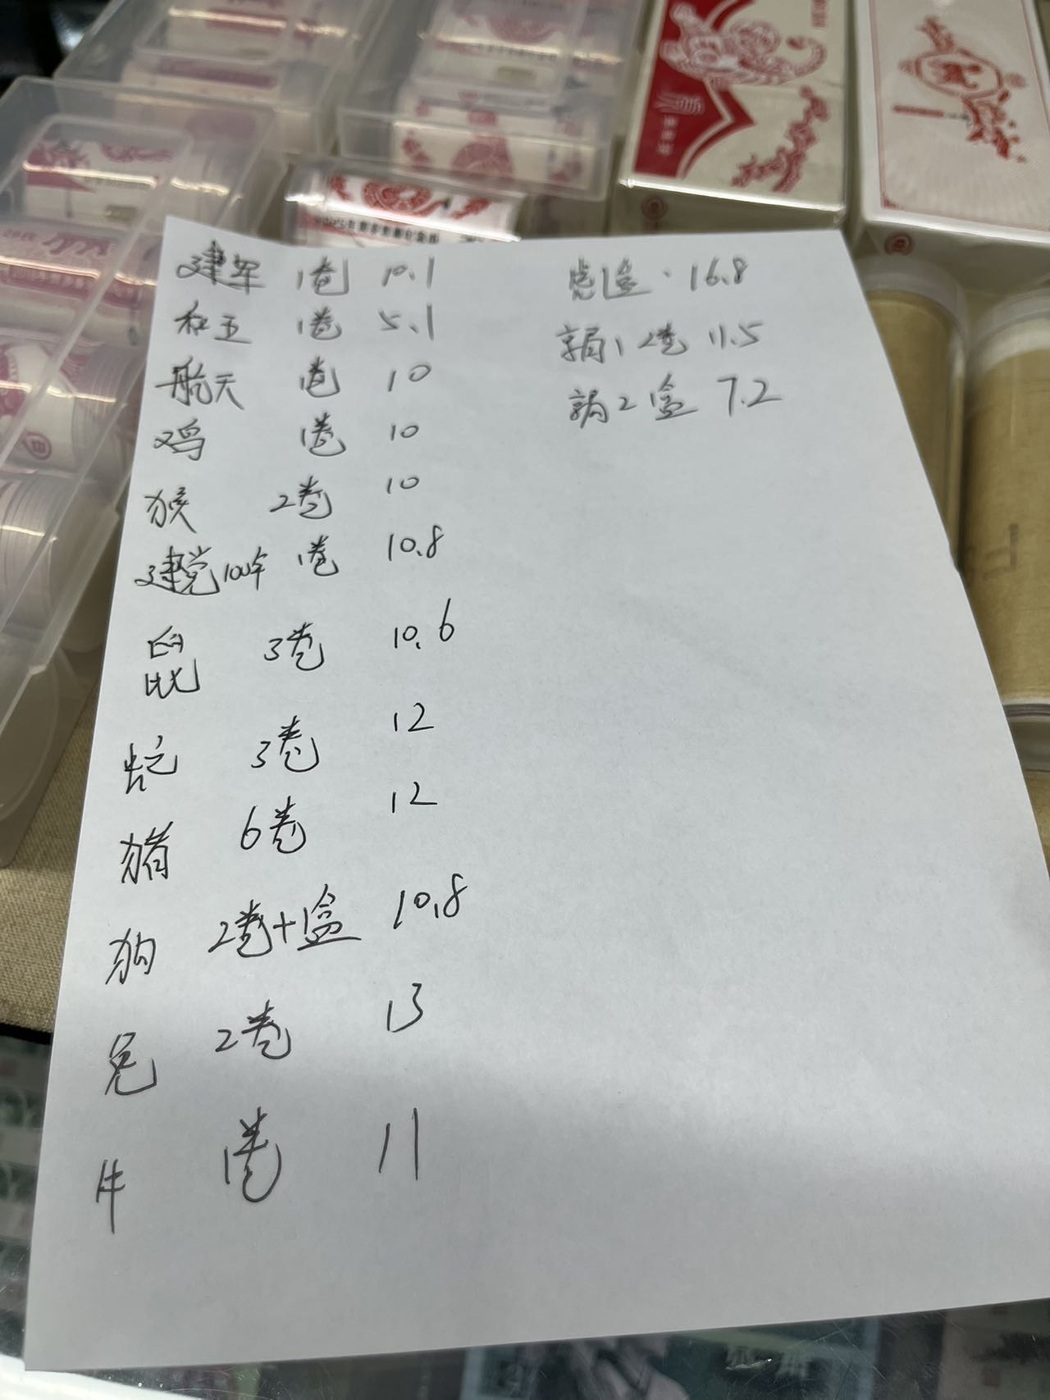 建军 1卷 10.1
和五 1卷 5.1
航天 1卷 10
鸡 1卷 10
猴 2卷 10
建党100年 1卷 10.8
鼠 3卷 10.6
蛇 3卷 12
猪 6卷 12
狗 2卷+1盒 10.8
兔 2卷 13
牛 1卷 11
虎1盒 16.8
1 2卷 11.5
2 盒 7.2